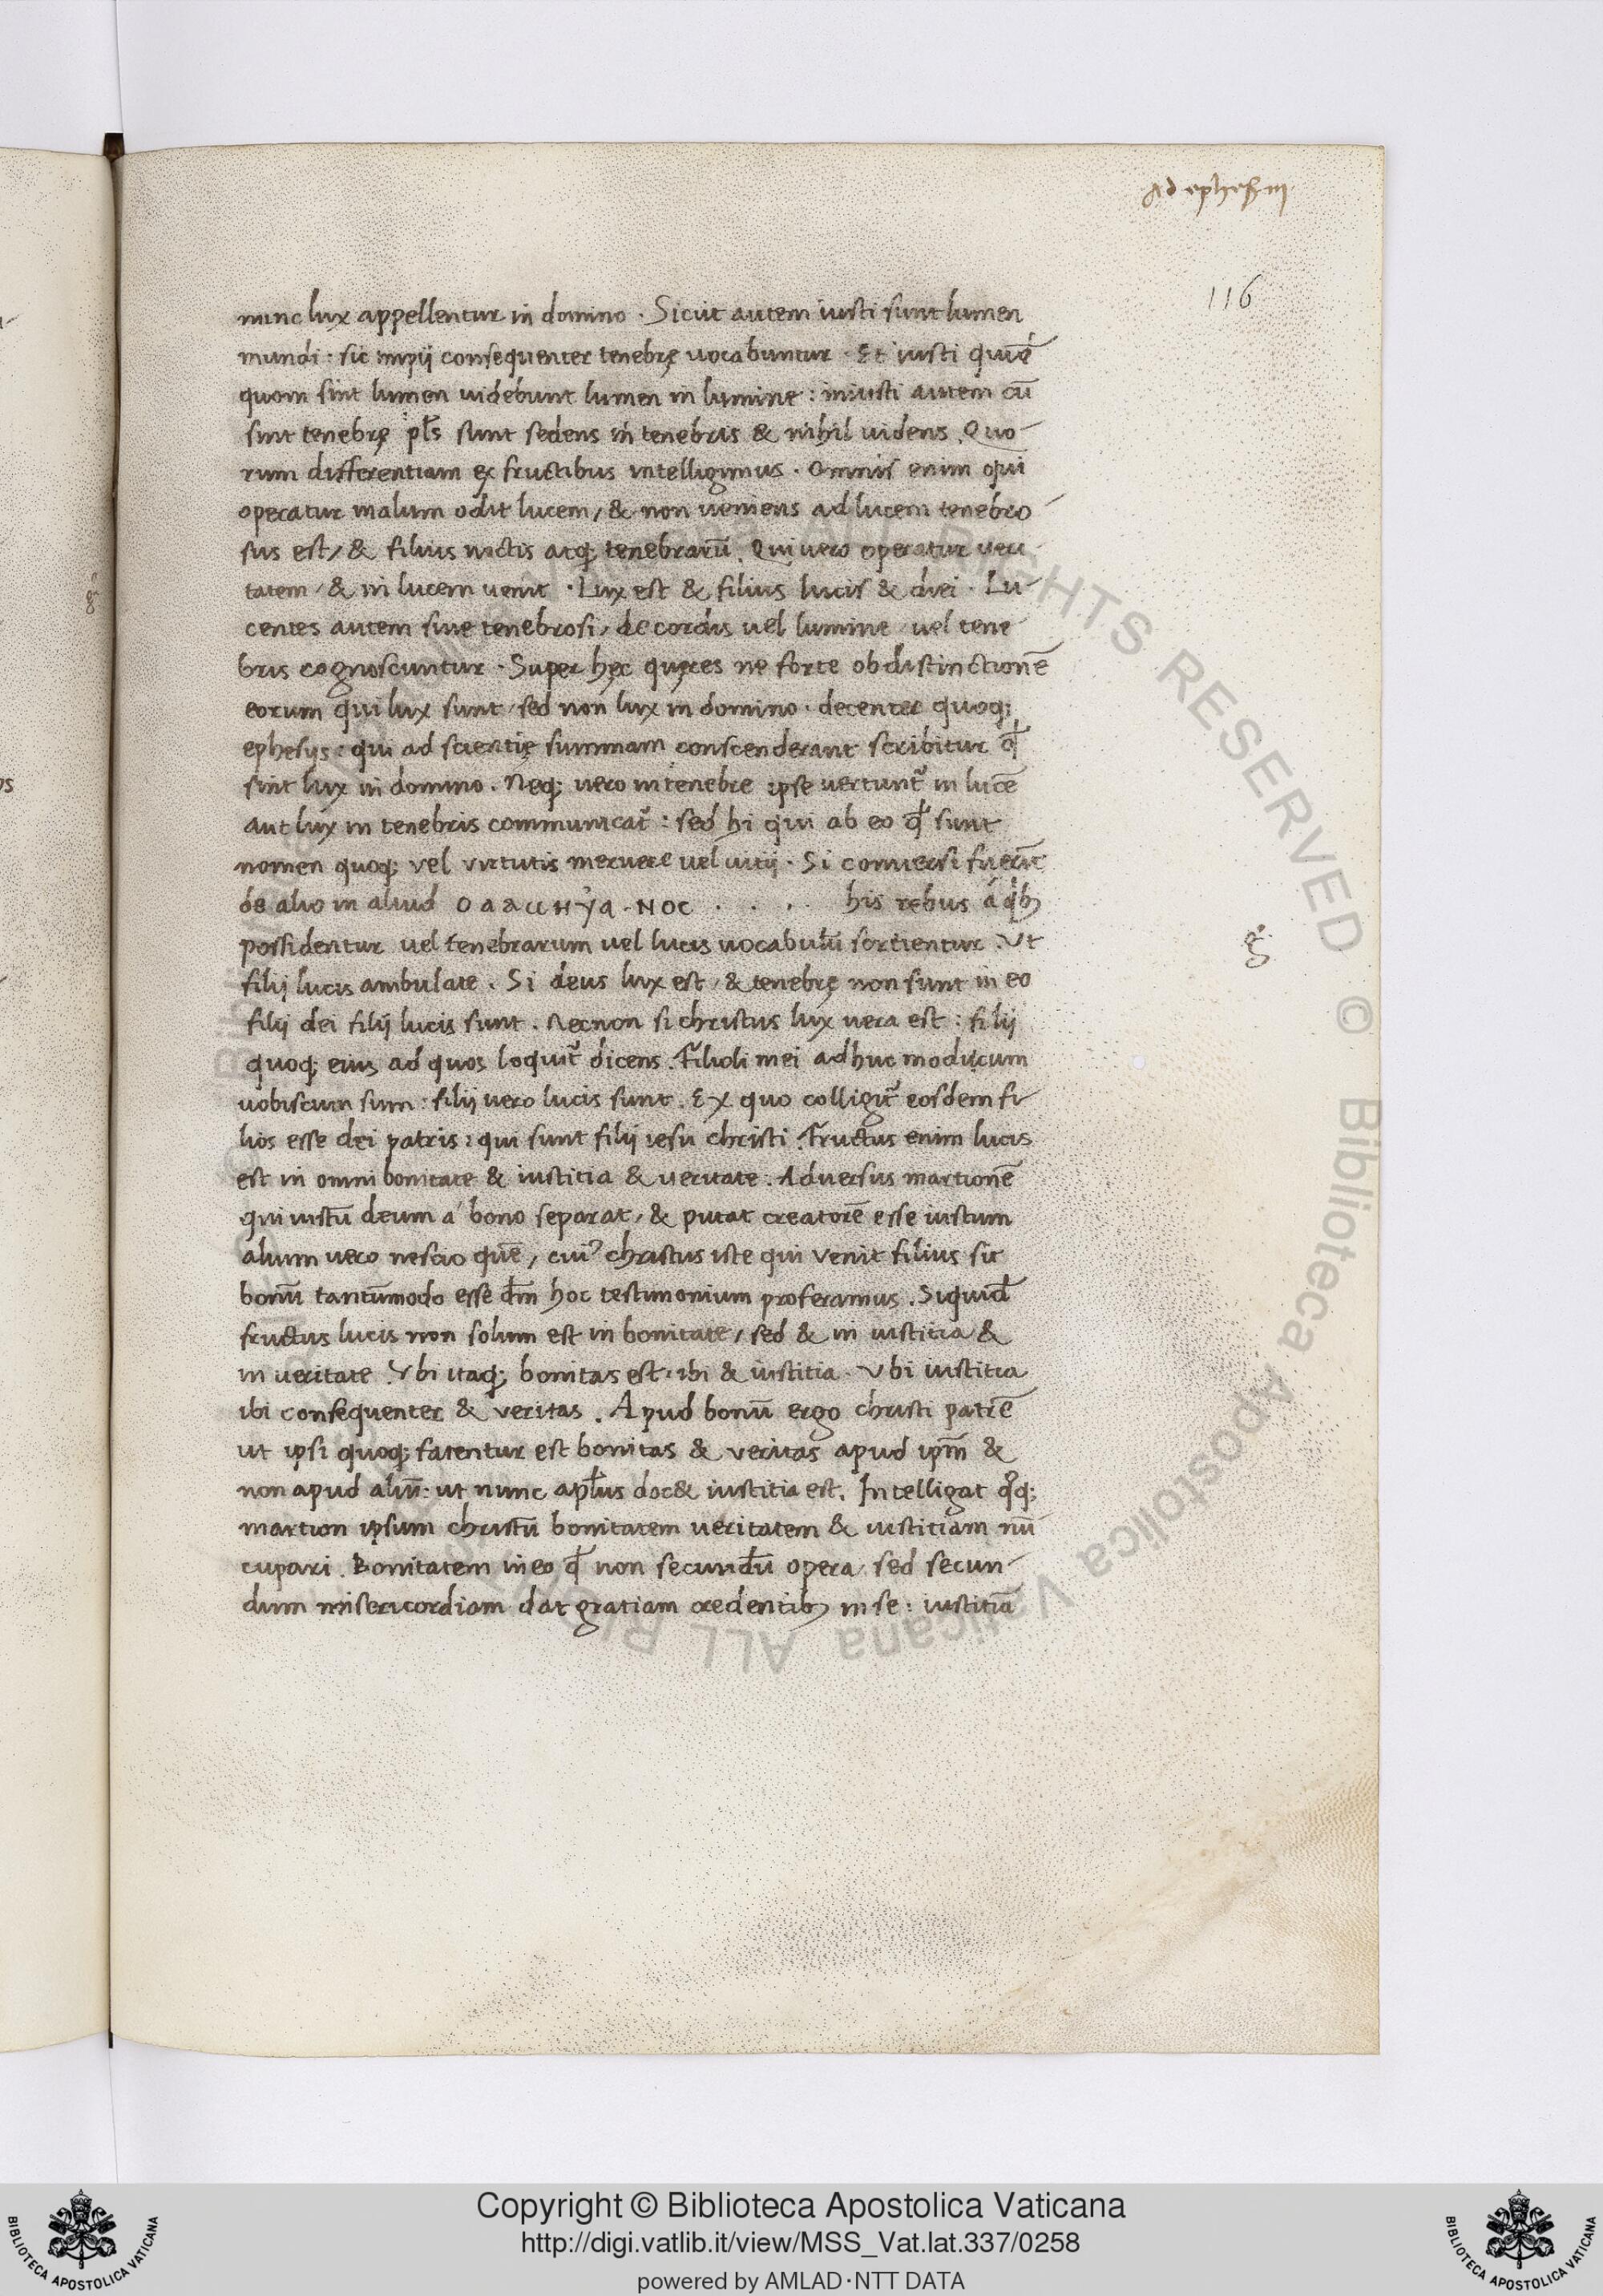 Ad ephes. III
116
nunc lux appellentur in domino · Sicut autem iusti sunt lumen
mundi : sic impij consequenter tenebrę uocabuntur · Et iusti quidē
quom sint lumen uidebunt lumen in lumine : iniusti autem cū
sint tenebrę pl̄s sunt sedens in tenebris & nihil uidens . Quo-
rum differentiam ex fructibus intelligimus · Omnis enim qui
operatur malum odit lucem / & non ueniens ad lucem tenebro
sus est / & filius noctis atq; tenebrarū . Qui uero operatur ueri
tatem / & in lucem uenit · Lux est & filius lucis & diei · Lu-
centes autem siue tenebrosi / de cordis uel lumine / uel tene
bris cognoscuntur · Super hęc quęres ne forte ob distinctionē
eorum qui lux sunt / sed non lux in domino · decenter quoq;
ephesijs : qui ad scientię summam conscenderant scribitur q̄
sint lux in domino . Neq; uero in tenebre ipse uertunt̄ in lucē
aut lux in tenebris communicat̄ : sed hi qui ab eo q̄ sunt
nomen quoq; vel virtutis meruere uel uitij · Si conuersi fuerīt
de alio in aliud his rebus á qb;
possidentur uel tenebrarum uel lucis uocabulū sortientur . Vt
filij lucis ambulate . Si deus lux est / & tenebrę non sunt in eo
filij dei filij lucis sunt . Necnon si christus lux uera est : filij
quoq; eius ad quos loquit̄ dicens . Filioli mei adhuc modicum
uobiscum sum : filij uero lucis sunt . Ex quo colligit̄ eosdem fi-
lios esse dei patris : qui sunt filij iesu christi . Fructus enim lucis
est in omni bonitate & iustitia & ueritate . Aduersus martionē
qui iustū deum á bono separat / & putat creatorē esse iustum
alium uero nescio quē / cui' christus iste qui venit filius sit
bonū tantūmodo esse dm̄ hoc testimonium proferamus . Siquid̄
fructus lucis non solum est in bonitate / sed & in iustitia &
in ueritate . Vbi itaq; bonitas est / ibi & iustitia · Vbi iustitia
ibi consequenter & veritas . Apud bonū ergo christi patrē
ut ipsi quoq; fatentur est bonitas & veritas apud ipm̄ &
non apud aliū : ut nunc apl̄us doc& iustitia est . Intelligat q̊q;
martion ipsum christū bonitatem ueritatem & iustitiam nū
cupari . Bonitatem in eo q̄ non secundū opera / sed secun-
dum misericordiam dat gratiam credentib; in se : iustitiā
Copyright © Biblioteca Apostolica Vaticana
http://digi.vatlib.it/view/MSS_Vat.lat.337/0258
powered by AMLAD·NTT DATA